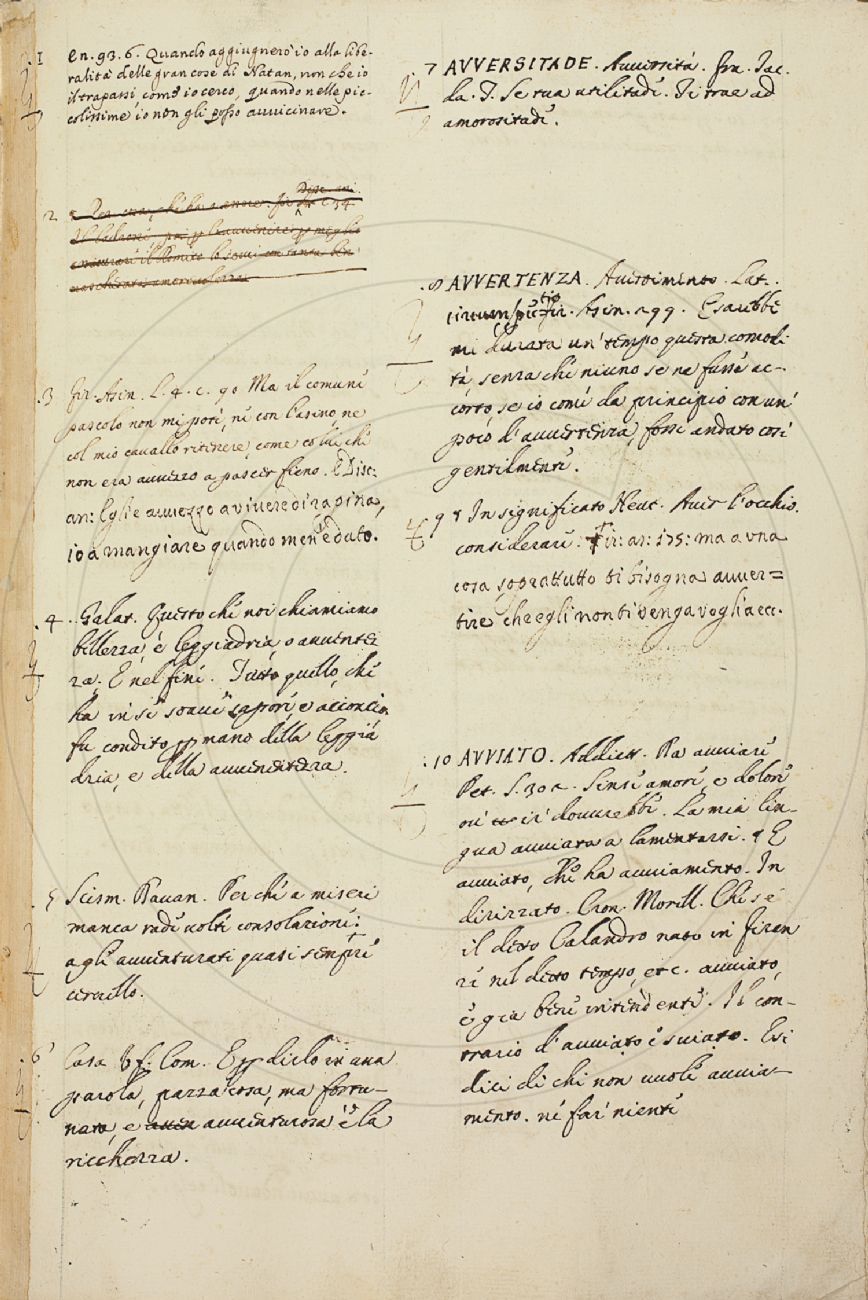 1 En. 93. 6. Quando aggiugnerò io alla libe-
ralità delle gran cose di Natan, non che io
il trapassi, come io cerco, quando nelle pic-
colissime io non gli posso avvicinare.
2
.3 fir. Asin. L. 4. c. 90 Ma il comune
pascolo non mi potè, nè con l'asino, ne
col mio cavallo ritenere, come colui, che
non era avvezzo a pascer fieno. E Disc.
an: Egli è avvezzo a vivere di rapina,
io à mangiare quando men'è dato.
.4. Galat. Questo che noi chiamiamo
bellezza, è leggiadria, o avvenen
za. E nel fine. Tutto quello, che
ha in se soavi sapori, e acconcia
fu condito per mano della leggia
dria, e della avvenentezza.
5 Scism. Pavan. Perche a miseri
manca rade volte consolazione:
agli avventurati quasi sempre
cervello.
.6 Casa Uf. Com. E per dirlo in una
parola, pazza cosa, ma fortu-
nata, e avventurosa è la
ricchezza.
7 AVVERSITADE. Avversità. fra. Jac.
da. T. Se tua utilitade. Ti trae ad
amorositade.
.8 AVVERTENZA. Avvertimento. Lat.
circunspectio fir. Asin. 299. E sarebbe
mi durata un' tempo questa comodi
tà, senza che niuno se ne fusse ac-
corto, se io come da principio con un'
poco d'avvertenza, fossi andato così
gentilmente.
9 § In significato Neut. Aver l'occhio.
considerare. fir: an: 175: ma a una
cosa soprattutto ti bisogna avver=
tire che egli non ti venga voglia ec.
.10 AVVIATO. Addiett. Da avviare
Pet. S. 302. Sensi amore, e dolore
ov' ir dovrebbe. La mia lin-
gua avviata a lamentarsi. § E
avviato, che ha avviamento. In
dirizzato. Cron. Morell. Chi s'è
il detto Calandro nato in Firen
ze nel detto tempo, etc. avviato,
è gia bene intendente. Il con-
trario d'avviato è sviato. E si
dice di chi non vuole avvia-
mento. nè far niente